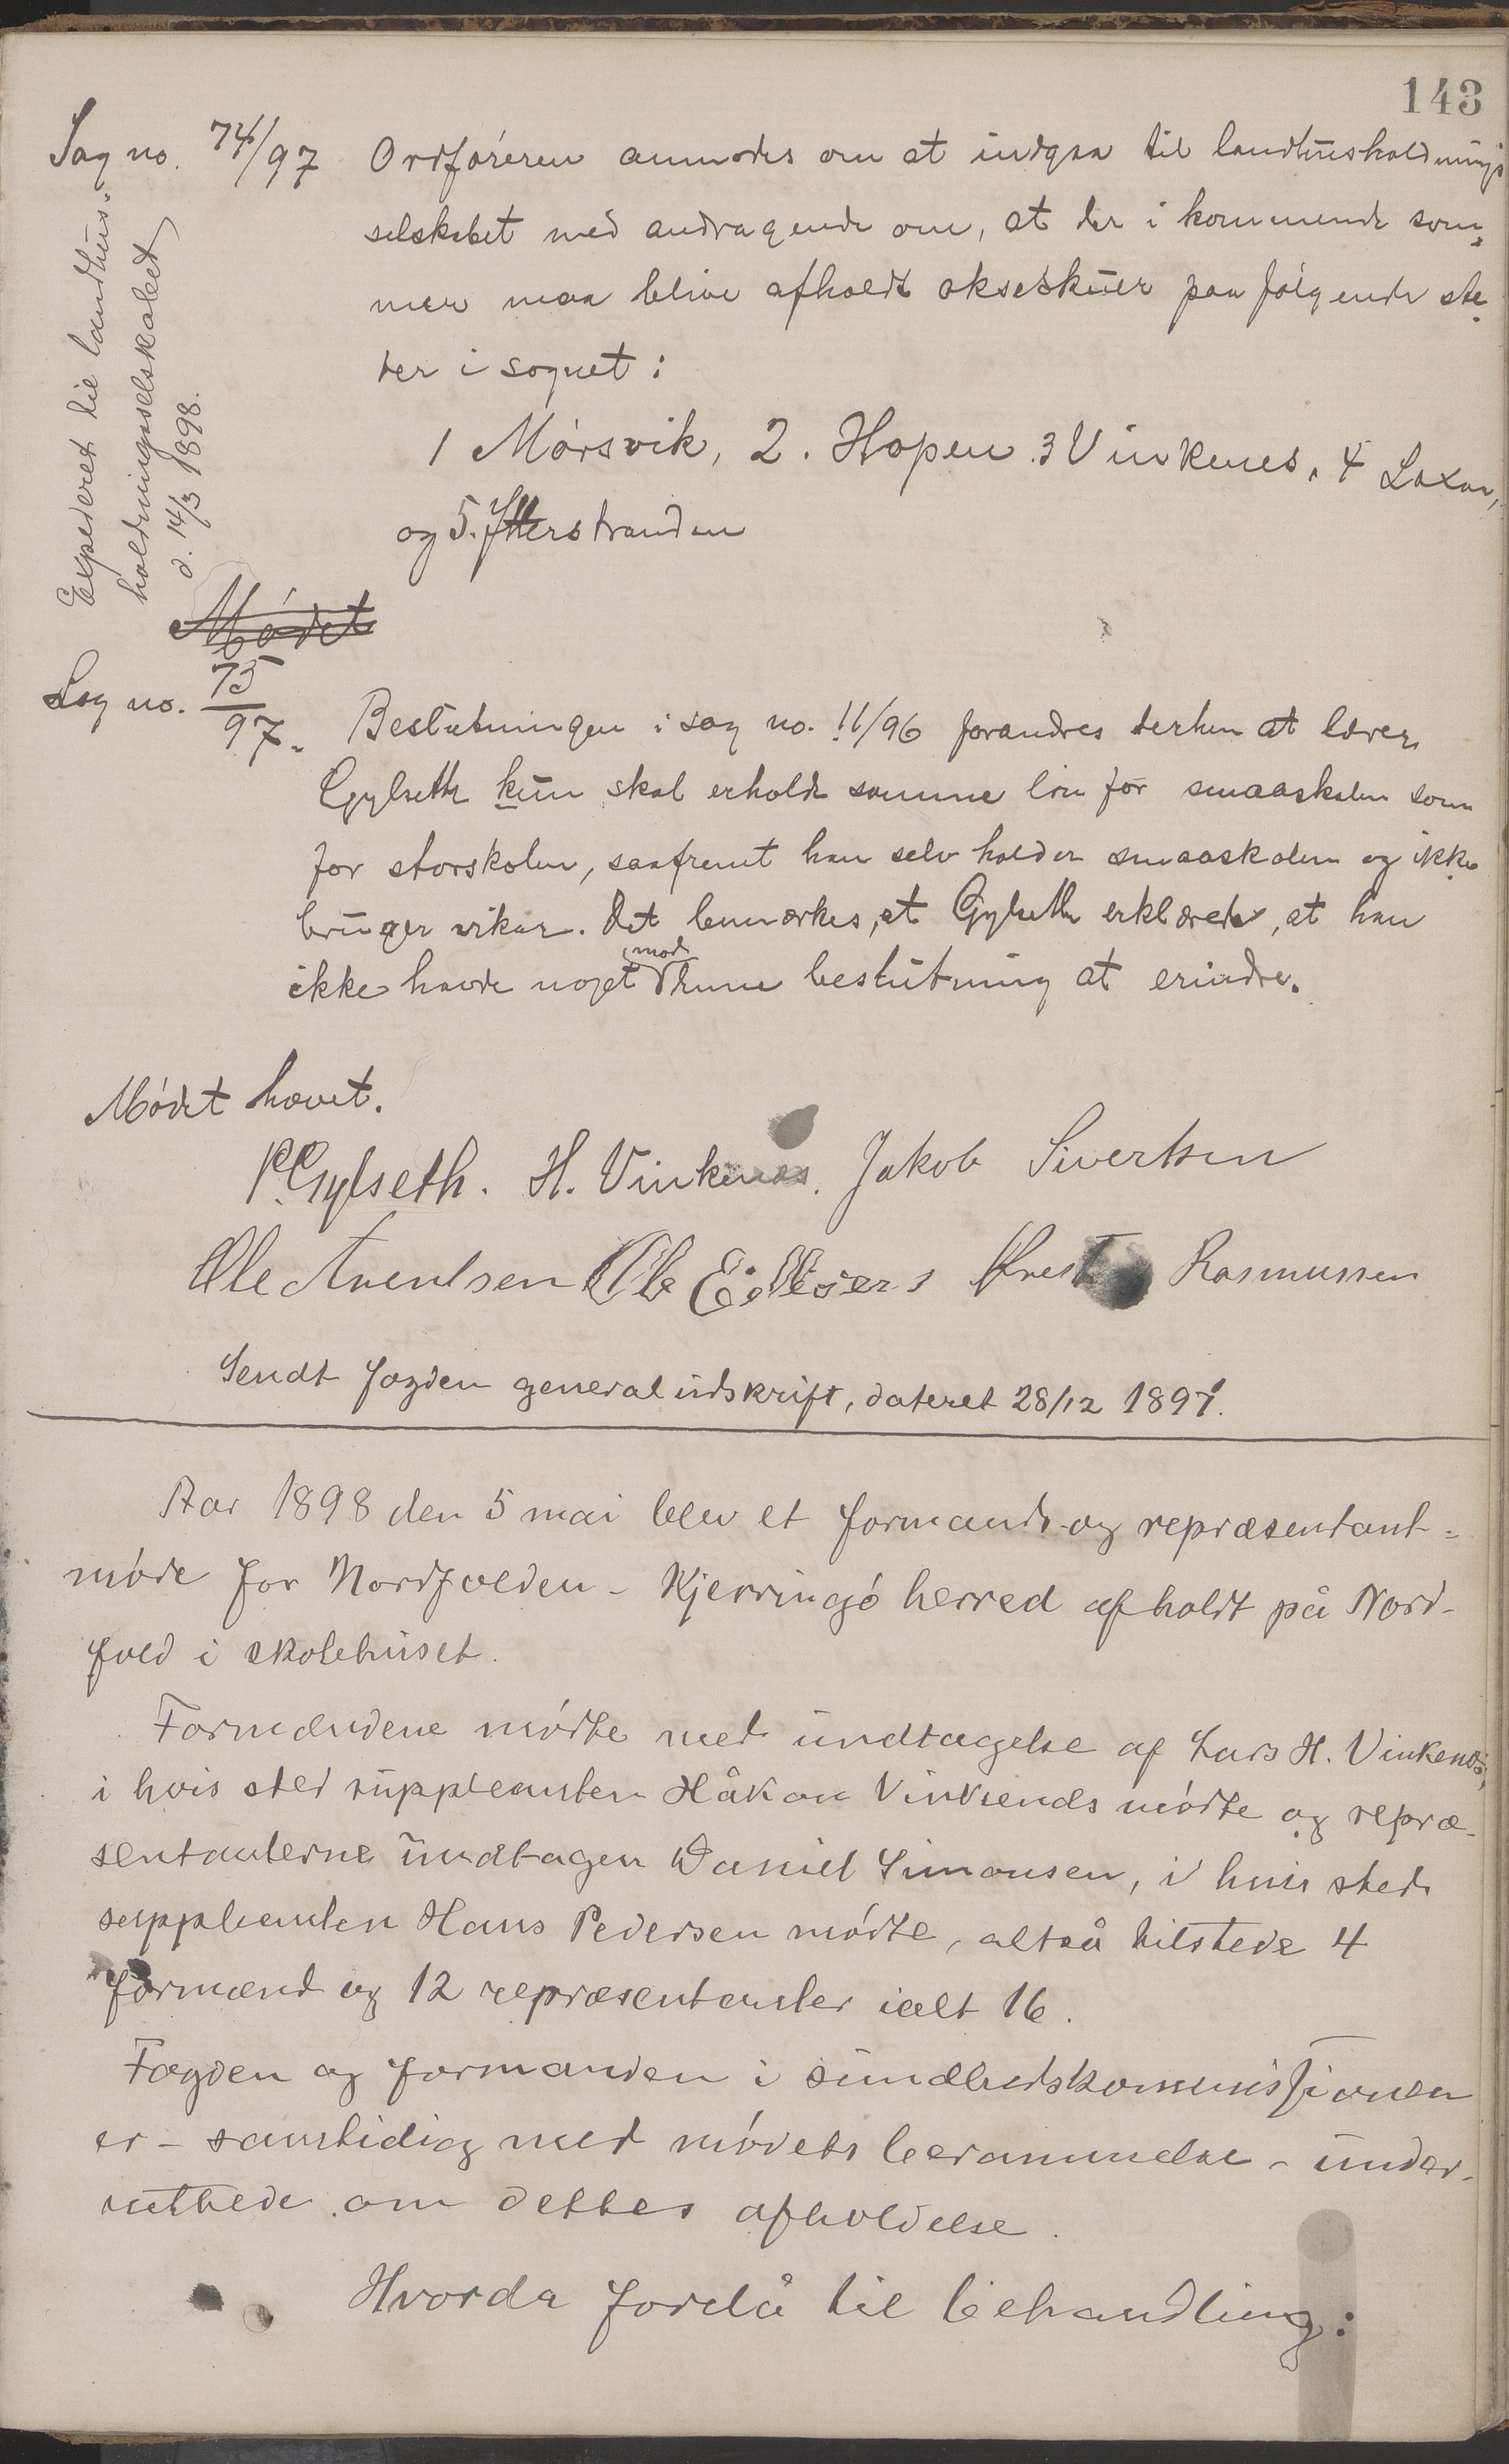 143
Sag no. 74/97 Ordføreren anmodes om at indgaa til landhusholdnings
selskabet med andragende om, at der i kommende som-
mer maa blive afholdt okseskuer paa følgende ste-
der i sognet:
1 Mørsvik, 2. Hopen 3 Vinkenes, 4 Laxaa,
og 5. Ytterstranden
Expederet til landhus-
holdningsselskabet
d. 14/3 1898.
Mødet
Sag no. 75/97. Beslutningen i sag no. 11/96 forandres derhen at lærer
Gylseth kun skal erholde samme løn for smaaskolen som
for storskolen, saafremt han selv holder smaaskolen og ikke
bruger vikar. Det bemærkes, at Gylseth erklærede, at han
ikke havde noget mod denne beslutning at erindre.
Mødet hævet.
P. Gylseth. H. Vinkenes. Jakob Sivertsen
Ole Arentsen Ole Rasmussen
Sendt fogden generaludskrift, dateret 28/12 1897.
Aar 1898 den 5 mai blev et formands- og repræsentant-
møde for Nordfolden - Kjerringø herred afholdt på Nord-
fold i skolehuset.
Formændene mødte med undtagelse af Lars H. Vinkenes,
i hvis sted suppleanten Håkon Vinkenes mødte og repræ-
sentanterne undtagen Daniel Simonsen, i hvis sted
suppleanten Hans Pedersen mødte, altså tilstede 4
formænd og 12 repræsentanter ialt 16.
Fogden og formanden i sundhedskommissionen
er - samtidig med mødets berammelse - under-
rettede om dettes afholdelse.
Hvorda forelå til behandling: